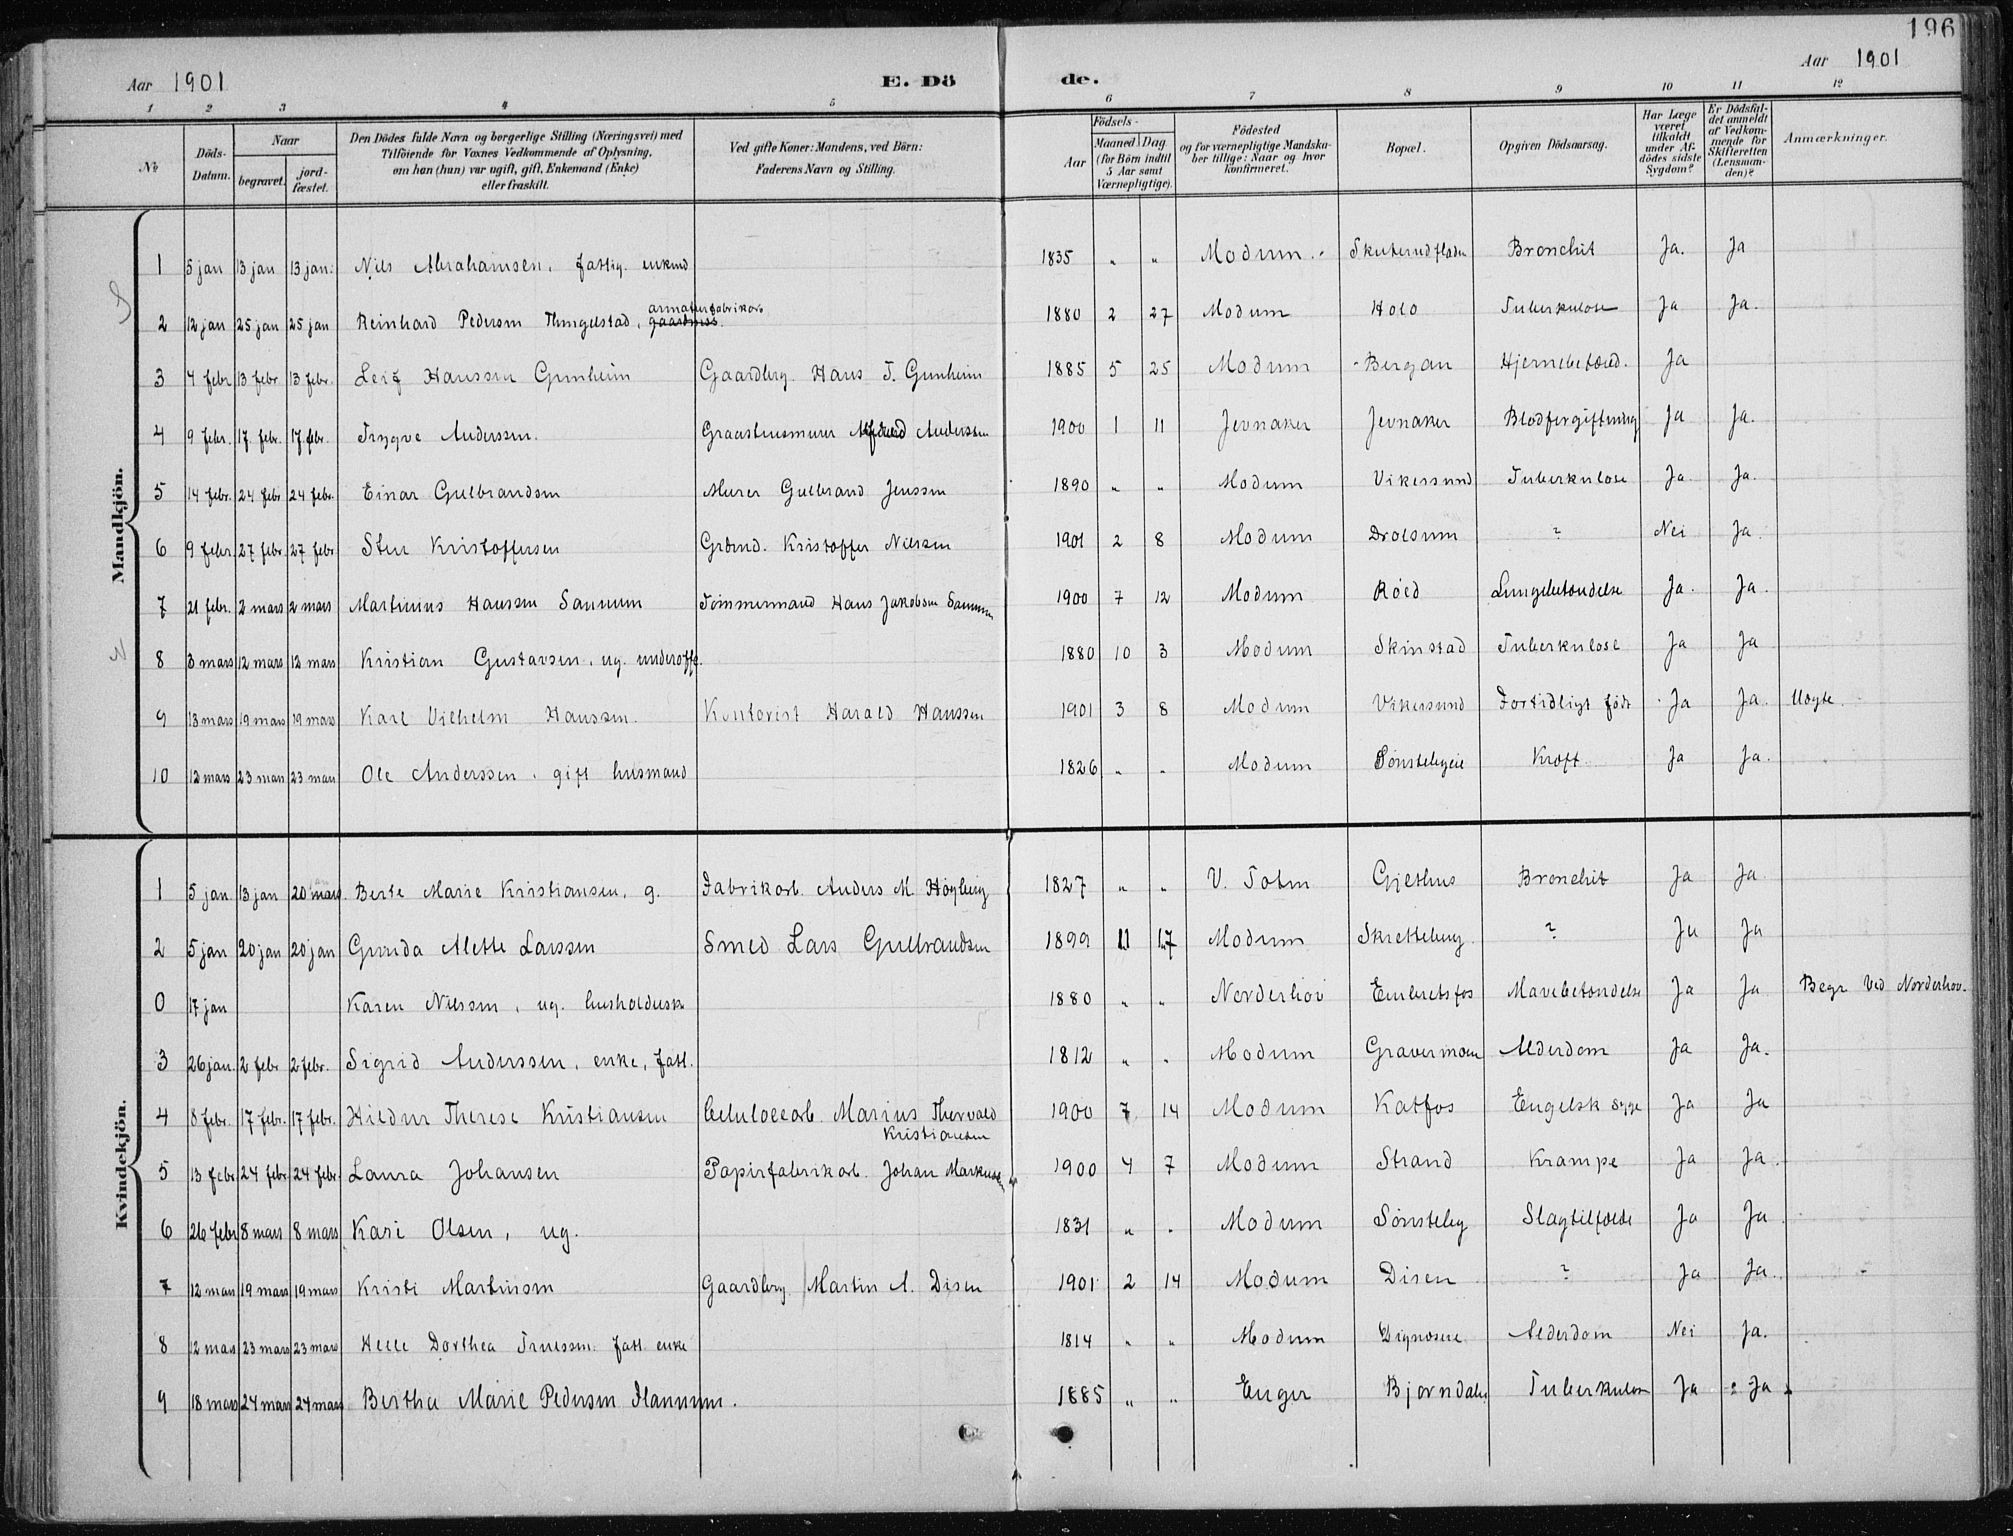 196
Aar 1901 E. Dö de. Aar 1901
1 2 3 4 5 6 7 8 9 10 11 12
№ Döds-Datum. Naar begravet. jord-fæstet. Den Dödes fulde Navn og borgerlige Stilling (Næringsvei) med Tilföiende for Voxnes Vedkommende af Oplysning, om han (hun) var ugift, gift, Enkemand (Enke) eller fraskilt. Ved gifte Koner: Mandens, ved Börn: Faderens Navn og Stilling. Födsels- Aar Maaned Dag (for Börn indtil 5 Aar samt Værnepligtige). Födested og for værnepligtige Mandskaber tillige: Naar og hvor konfirmeret. Bopæl. Opgiven Dödsaarsag. Har Læge været tilkaldt under Afdödes sidste Sygdom? Er Dödsfaldet anmeldt af Vedkommende for Skifteretten (Lensmanden)? Anmærkninger.
Mandkjön.
1 5 jan 13 jan 13 jan. Nils Abrahamsen, fattig. enkmd 1835 " " Modum. Skuterudfladen Bronchit Ja. Ja
2 12 jan 25 jan 25 jan Reinhard Pedersen Thingelstad, armaturfabrikarb. 1880 2 27 Modum Holo Tuberkulose Ja Ja.
3 4 febr 13 febr. 13 febr. Leif Hanssen Gunheim Gaardbrg. Hans T. Gunheim 1885 5 25 Modum Bergan Hjernebetænd. Ja
4 9 febr. 17. febr. 17. febr. Trygve Anderssen. Graastensmurer Anderssen 1900 1 11 Jevnaker Jevnaker Blodforgiftning Ja Ja.
5 14 febr. 24 febr 24 febr. Einar Gulbrandsen Murer Gulbrand Jenssen 1890 " " Modum Vikersund Tuberkulose Ja Ja.
6 9 febr. 27 febr. 27 febr Sten Kristoffersen Grdmd. Kristoffer Nilssen 1901 2 8 Modum Drolsum ? Nei Ja.
7 21 febr. 2 mars 2 mars Martinius Hanssen Sannum Tømmermand Hans Jakobsen Sannum 1900 7 12 Modum Røed Lungebetændelse Ja. Ja.
8 3 mars 12 mars 12 mars Kristian Gustavsen, ug. underoff. 1880 10 3 Modum Skinstad Tuberkulose Ja Ja
9 13 mars 19 mars 19 mars Karl Vilhelm Hanssen. Kontorist Harald Hanssen 1901 3 8 Modum Vikersund Fortidligt født Ja Ja. Uægte.
10 12 mars 23 mars 23 mars Ole Anderssen, gift husmand 1826 " " Modum Sønstebyeie Kræft Ja Ja.
Kvindekjön.
1 5 jan 13 jan 20 mars. Berte Marie Kristiansen, g. Fabrikarb. Anders M. Høyberg 1827 " " V. Toten Gjethus Bronchit Ja Ja
2 5 jan 20 jan 20 jan Gunda Alette Larssen Smed Lars Gulbrandsen 1899 11 17 Modum Skretteberg. ? Ja Ja
0 17 jan Karen Nilssen, ug. husholderske 1880 " " Norderhov Embretsfos Mavebetændelse Ja Ja Begr ved Norderhov.
3 26 jan. 2 febr 2 febr. Sigrid Anderssen, enke, fatt. 1812 " " Modum Gravermoen Alderdom Ja Ja.
4 8 febr. 17 febr. 17 febr. Hildur Therese Kristiansen Celulocearb. Marius Thorvald Kristiansen 1900 7 14 Modum Katfos Engelsk syge Ja Ja
5 13 febr 24 febr 24 febr. Laura Johansen Papirfabrikarb. Johan Markussen 1900 4 7 Modum Strand Krampe Ja Ja.
6 26 febr 8 mars 8 mars Kari Olsen, ug. 1831 " " Modum Sønsteby Slagtilfælde Ja Ja
7 12 mars 19 mars 19 mars Kristi Martinsen Gaardbrg Martin A. Disen 1901 2 14 Modum Disen ? Ja Ja.
8 12 mars 23 mars 23 mars Helle Dorthea Truessen. fatt. enke 1814 " " Modum Alderdom Nei Ja.
9 18 mars 24 mars 24 mars Bertha Marie Pedersen Flannum. 1885 " " Enger Bjørndalen Tuberkulose Ja Ja